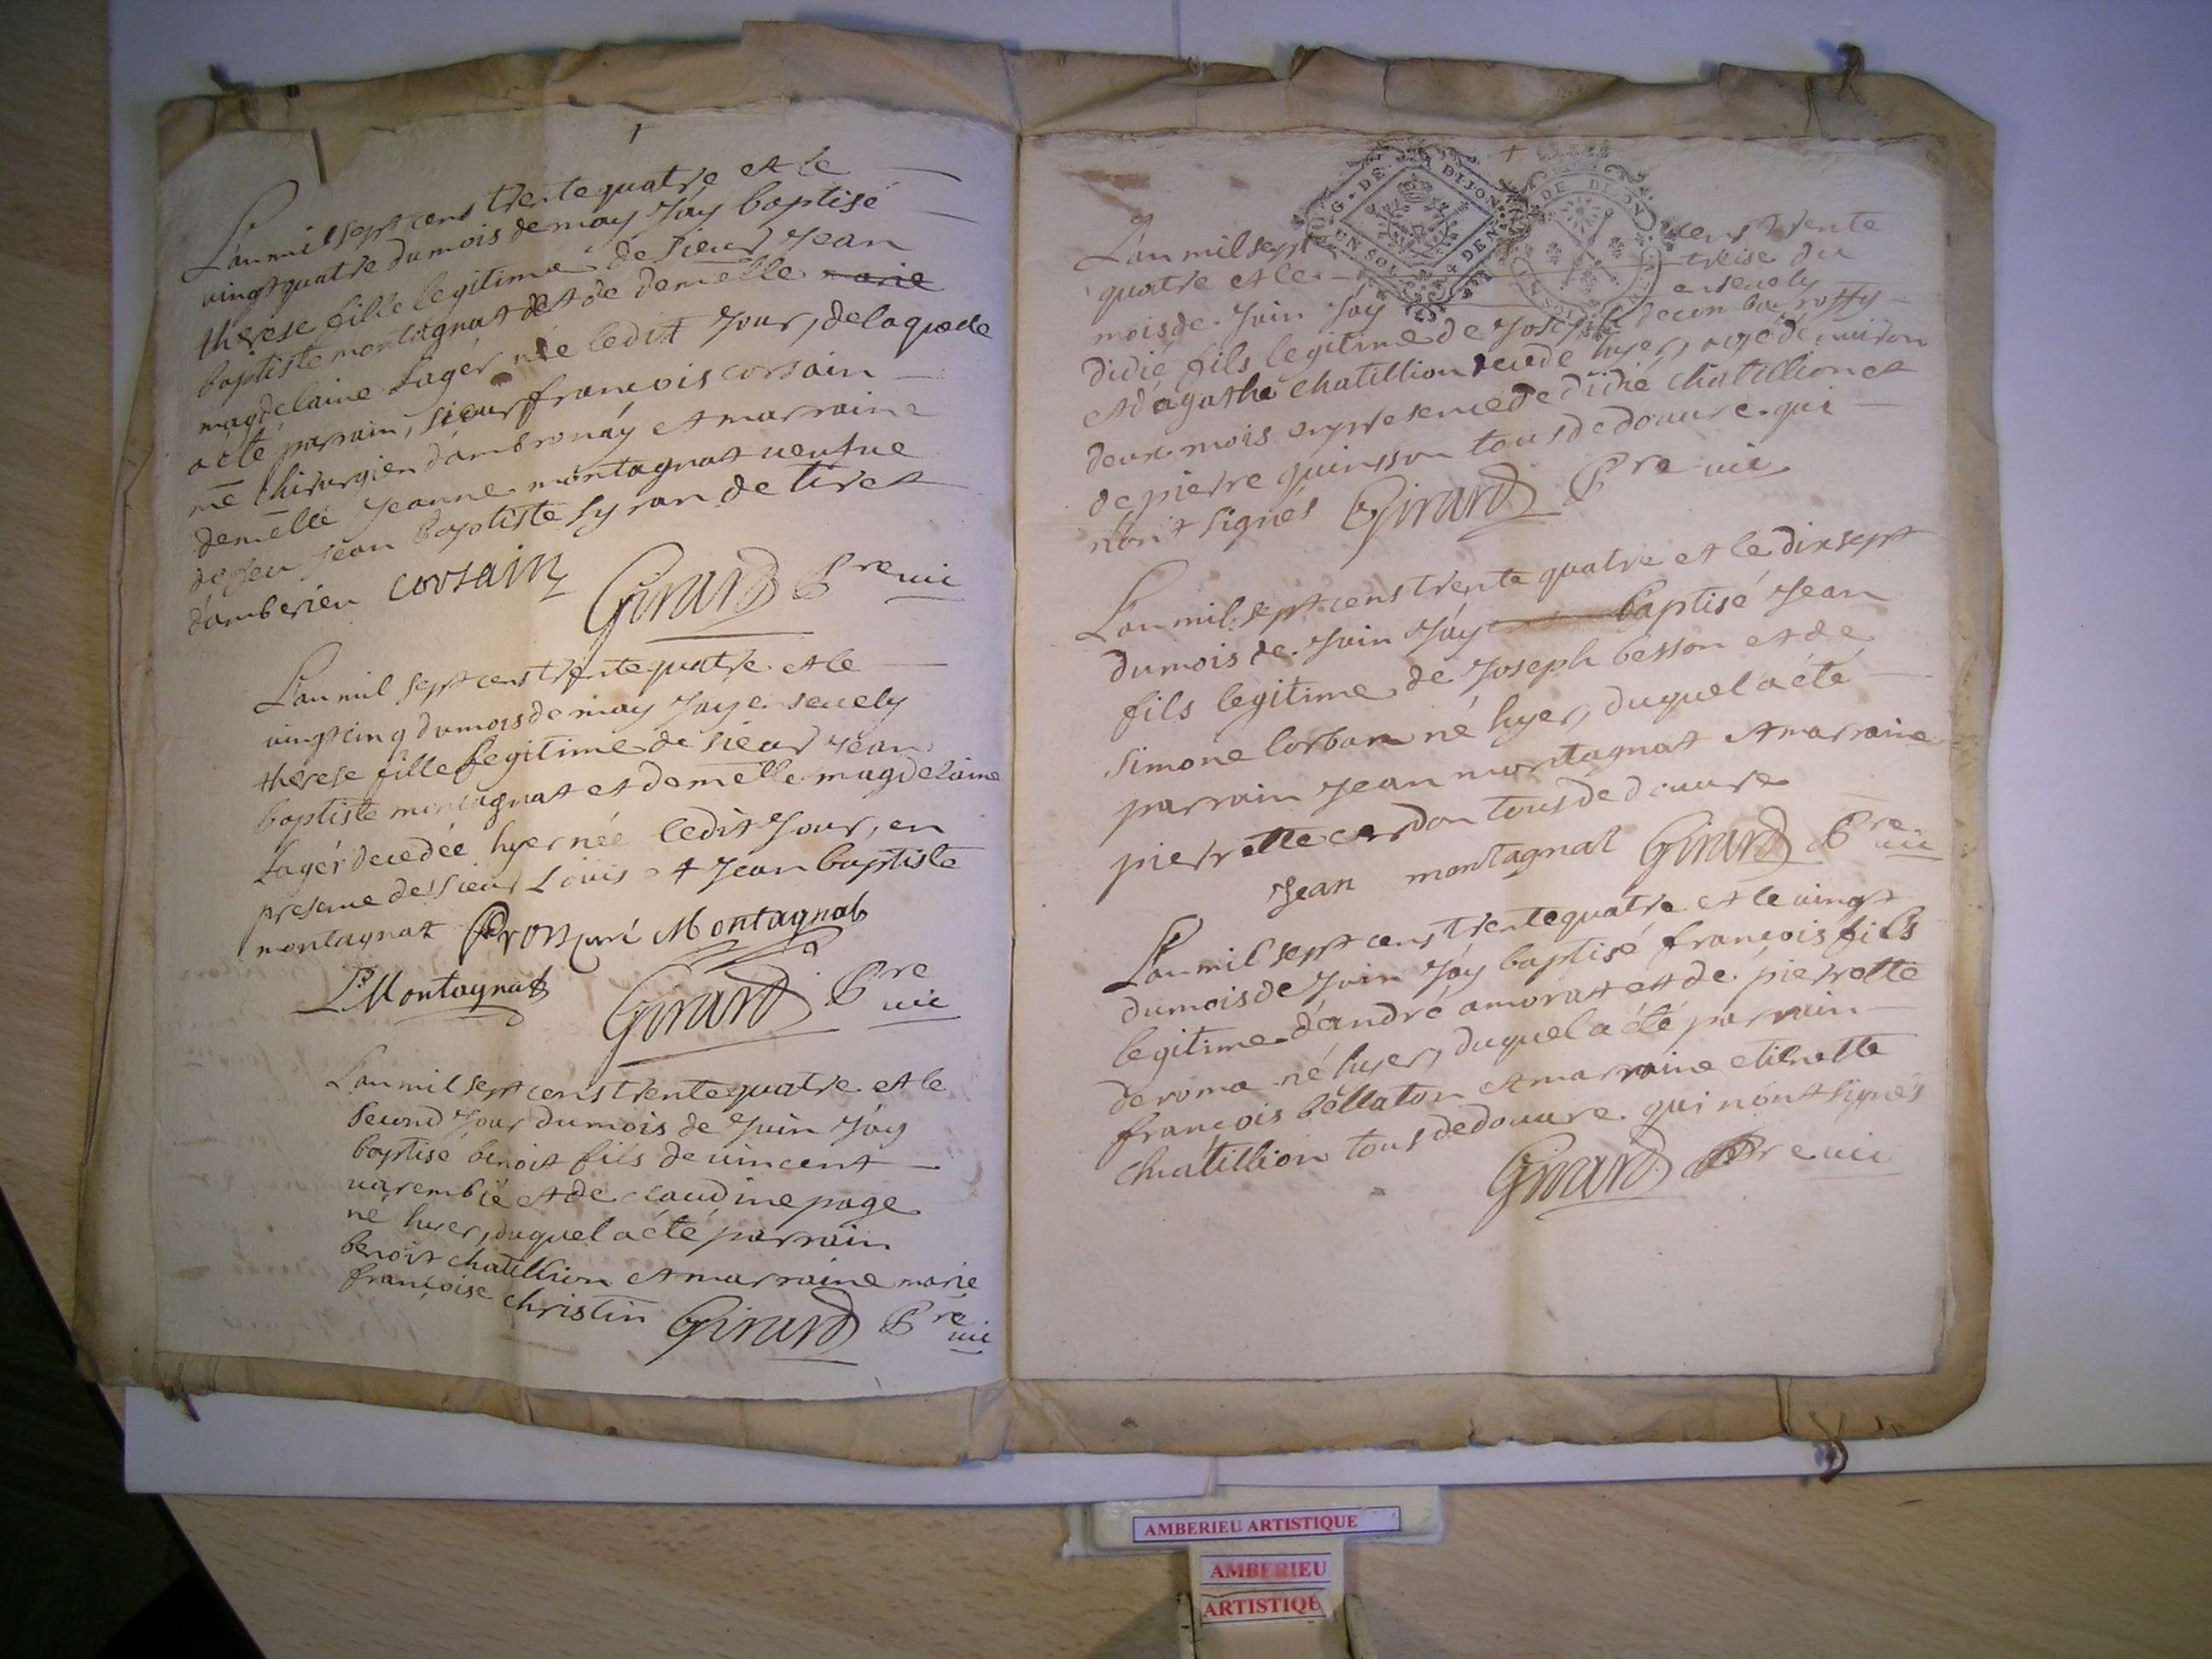 1
L'an mil sept cens trente quatre et le
vingt quatre du mois de may j'ay baptisé
therese fille legitime de sieur jean
baptiste montagnat et de demelle marie
magdelaine Lager née ledit jour, de laquelle
a été parrain, sieur françois corsain
me chirurgien d'ambronay et marraine
demelle jeanne montagnat veufue
de feu jean baptiste syran de tiret
d'amberieu corsain Girard Pre vic
L'an mil sept cens trente quatre et le
vingt cinq du mois de may j'ay enseuely
therese fille legitime de sieur jean
baptiste montagnat et demelle magdelaine
Lager decedée hyer née ledit jour, en
presence de sieur Louis et jean baptiste
montagnat Montagnat
L Montagnat Girard Pre vic
L'an mil sept cens trente quatre et le
second jour du mois de juin j'ay
baptisé benoit fils de vincent
varembié et de claudine page
né hyer, duquel a été parrain
benoit chatillion et marraine marie
françoise christin Girard Pre vic
+
G. DE DIJON
UN SOL 4 DEN.
DE DIJON
L'an mil sept cens trente
quatre et le treise du
mois de juin j'ay enseuely
didié fils legitime de joseph decombe roffy
et d'agathe chatillion decedé hyer, agé d'enuiron
deux mois en presence de didié chatillion et
de pierre guinsson tous de douure qui
n'ont signés Girard Pre vic
L'an mil sept cens trente quatre et le dix sept
du mois de juin j'ay baptisé jean
fils legitime de joseph besson et de
simone lorban né hyer, duquel a été
parrain jean montagnat et marraine
pierrette cardon tous de douure
jean montagnat Girard Pre vic
L'an mil sept cens trente quatre et le vingt
du mois de juin j'ay baptisé françois fils
legitime d'andré amorat et de pierrette
deroma né hyer, duquel a été parrain
françois bellaton et marraine etienette
chatillion tous de douure qui n'ont signés
Girard Pre vic
AMBERIEU ARTISTIQUE
AMBERIEU
ARTISTIQUE